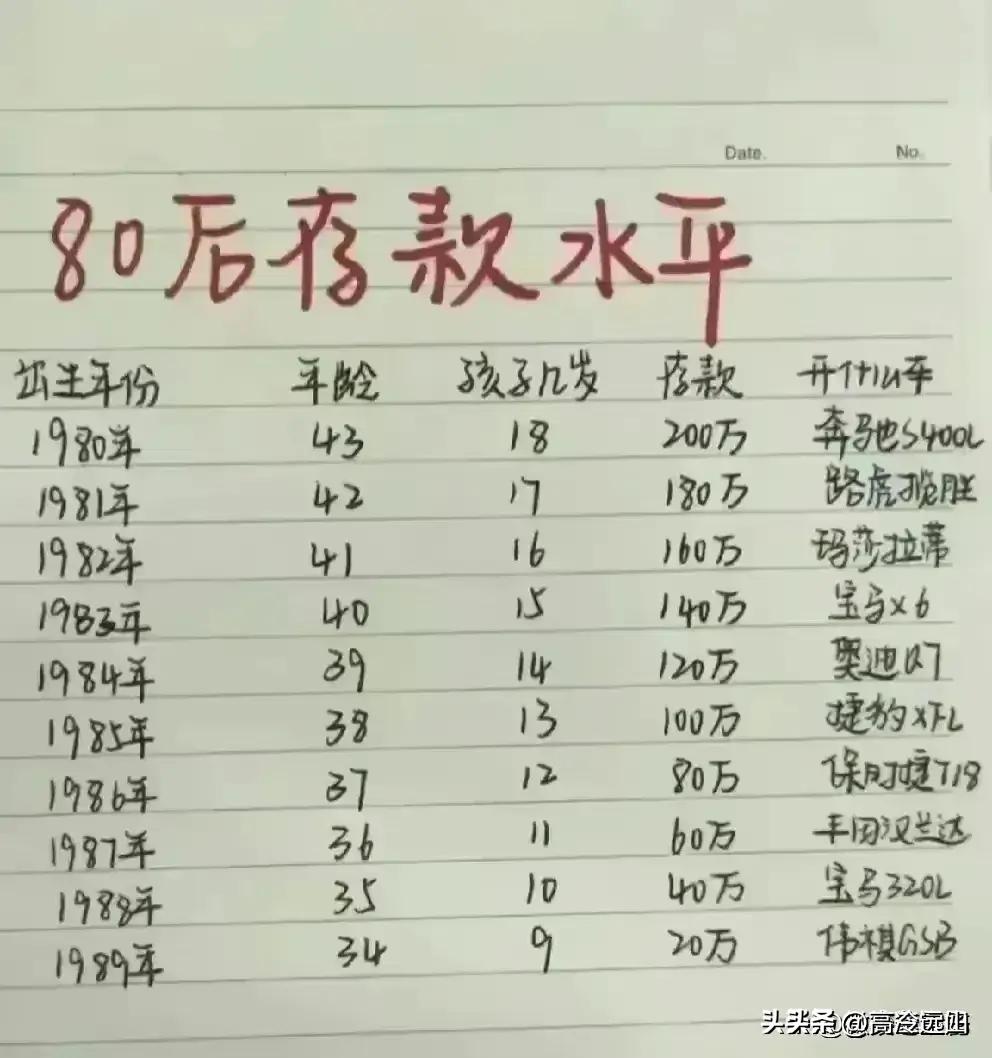 Date. No.
80后存款水平
出生年份 年龄 孩子几岁 存款 开什么车
1980年 43 18 200万 奔驰S400L
1981年 42 17 180万 路虎揽胜
1982年 41 16 160万 玛莎拉蒂
1983年 40 15 140万 宝马x6
1984年 39 14 120万 奥迪Q7
1985年 38 13 100万 捷豹XFL
1986年 37 12 80万 保时捷718
1987年 36 11 60万 丰田汉兰达
1988年 35 10 40万 宝马320L
1989年 34 9 20万
头条 @高冷远山